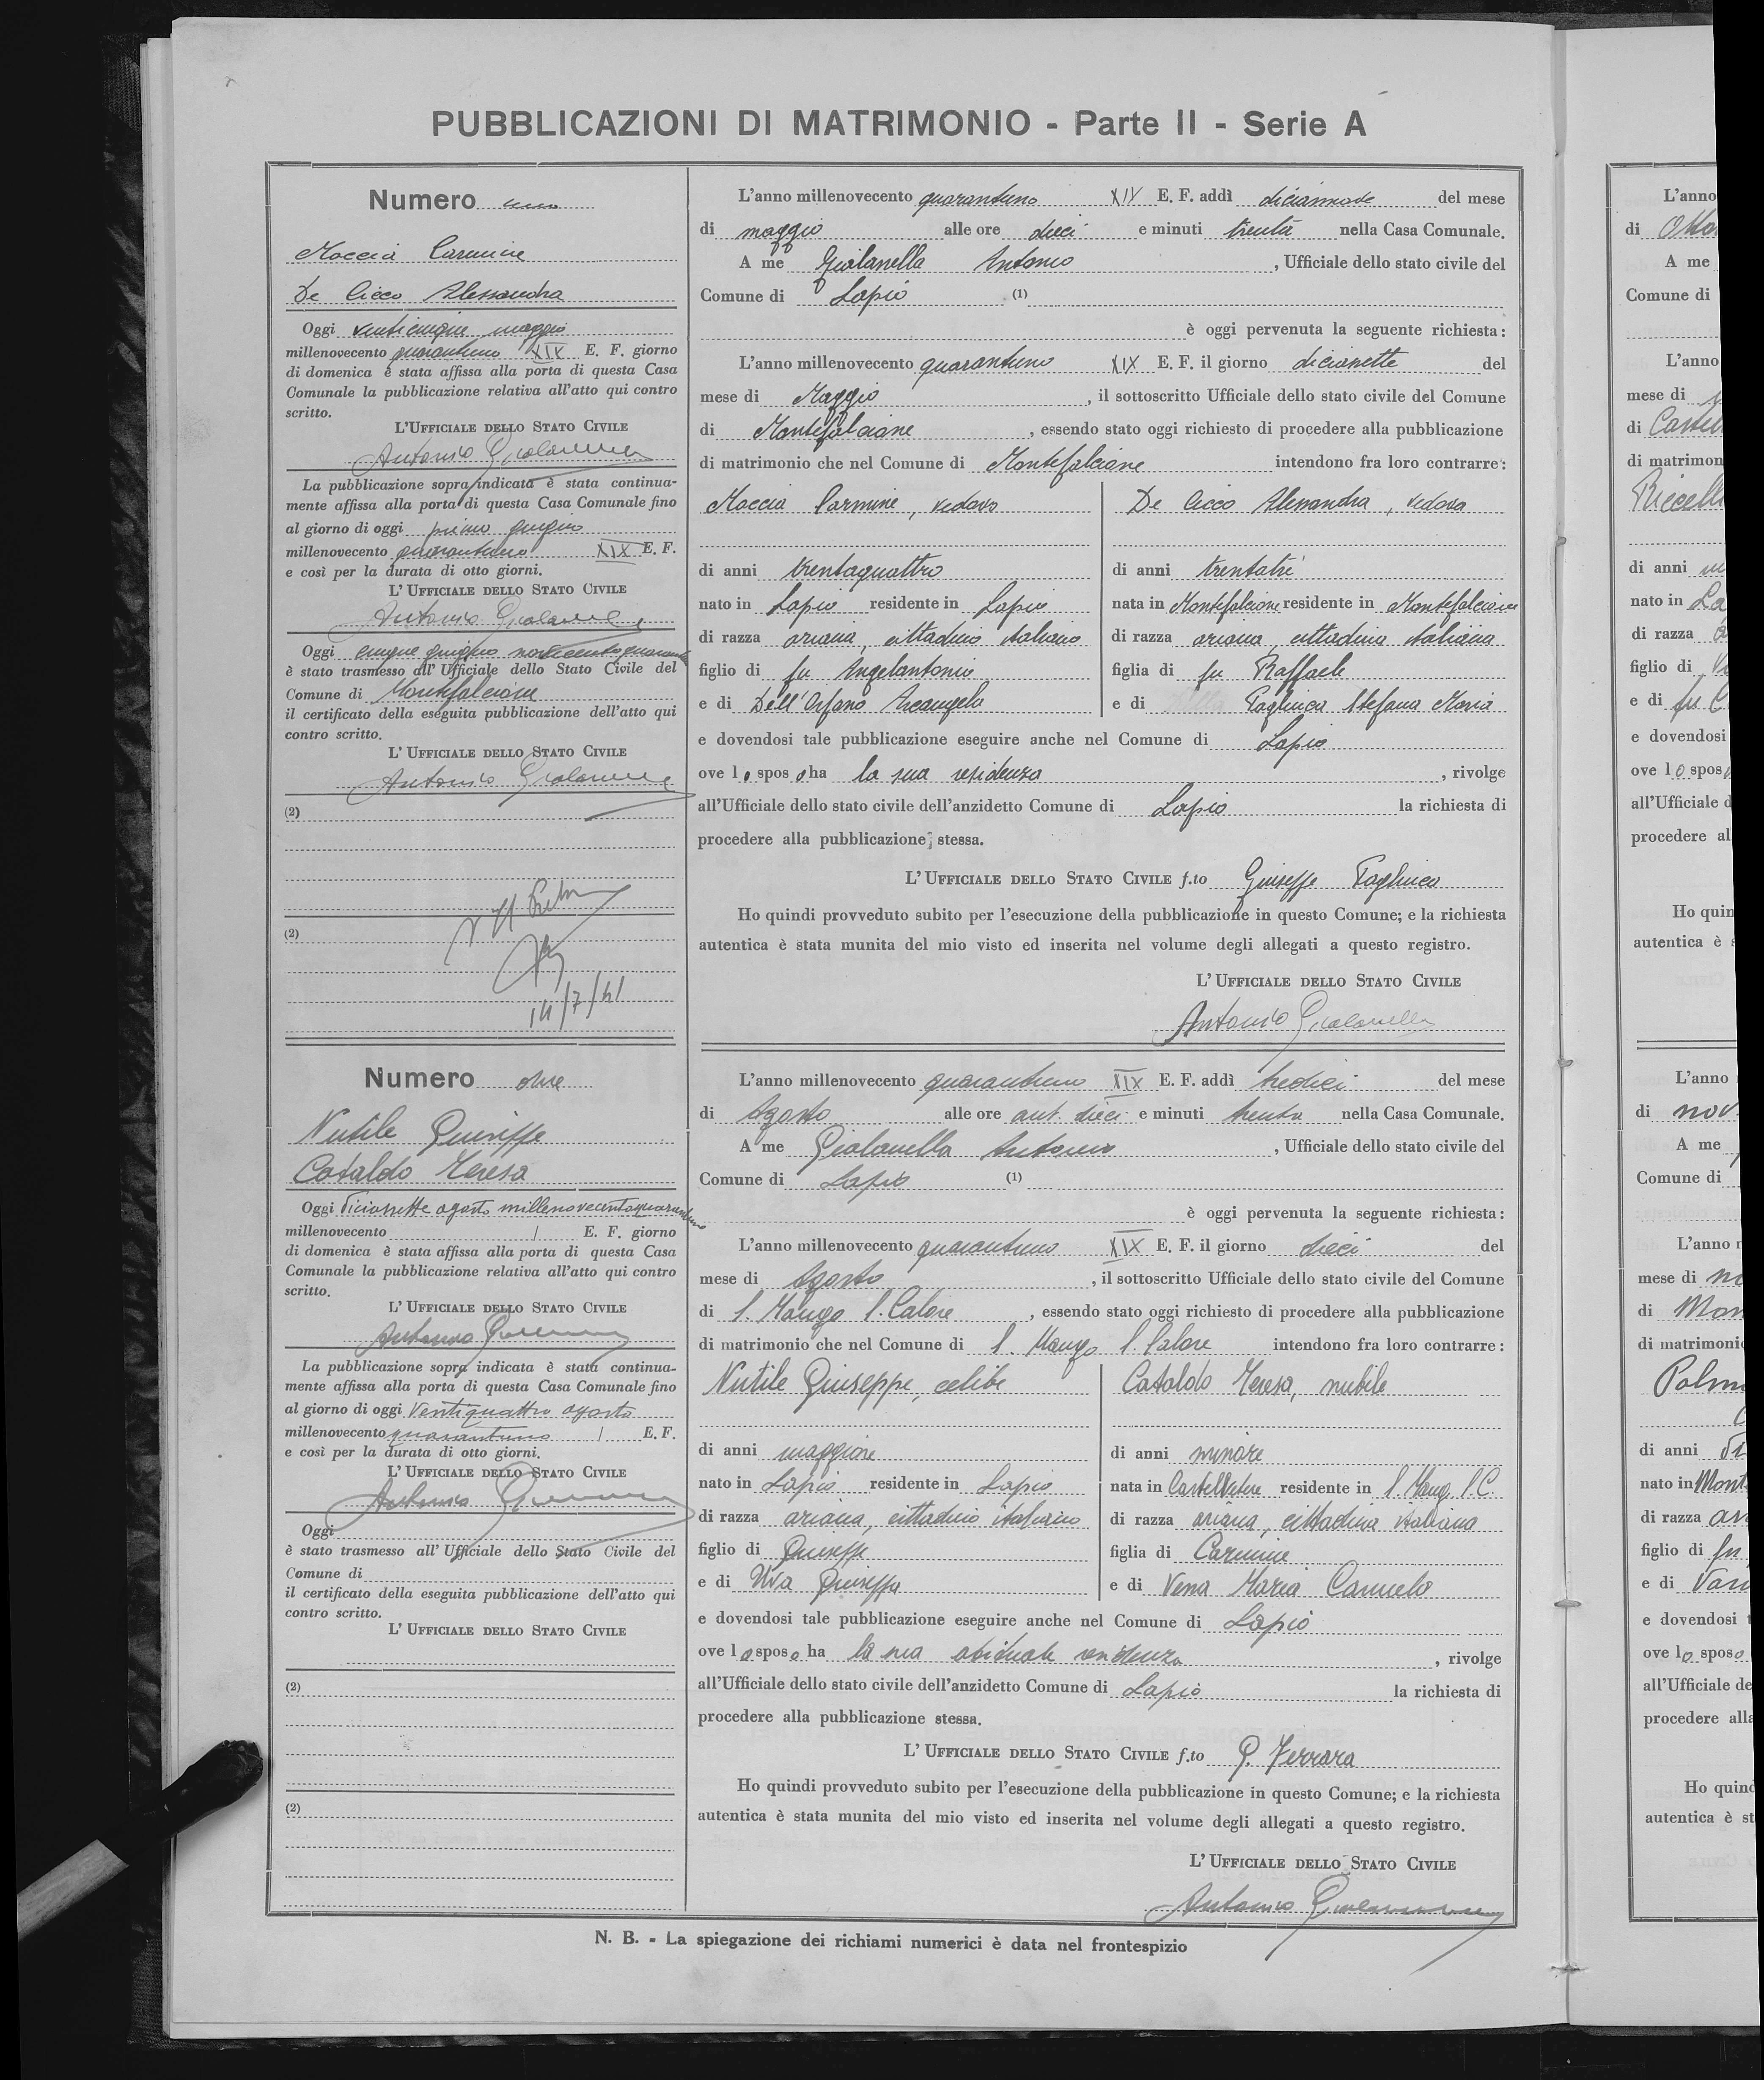 PUBBLICAZIONI DI MATRIMONIO - Parte II - Serie A
Numero uno
Moccia Carmine
De Cicco Alessandra
Oggi venticinque maggio
millenovecento quarantuno XIX E. F. giorno
di domenica è stata affissa alla porta di questa Casa
Comunale la pubblicazione relativa all'atto qui contro
scritto.
L'UFFICIALE DELLO STATO CIVILE
Antonio Gialanella
La pubblicazione sopra indicata è stata continua-
mente affissa alla porta di questa Casa Comunale fino
al giorno di oggi primo giugno
millenovecento quarantuno XIX E. F.
e così per la durata di otto giorni.
L' UFFICIALE DELLO STATO CIVILE
Antonio Gialanella
Oggi cinque giugno
è stato trasmesso all' Ufficiale dello Stato Civile del
Comune di Montefalcione
il certificato della eseguita pubblicazione dell'atto qui
contro scritto.
L' UFFICIALE DELLO STATO CIVILE
Antonio Gialanella
(2)
(2)
14/7/41
L'anno millenovecento quarantuno XIX E. F. addì diciannove del mese
di maggio alle ore dieci e minuti trenta nella Casa Comunale.
A me Gialanella Antonio , Ufficiale dello stato civile del
Comune di Lapio (1)
è oggi pervenuta la seguente richiesta:
L'anno millenovecento quarantuno XIX E. F. il giorno dicianette del
mese di Maggio , il sottoscritto Ufficiale dello stato civile del Comune
di Montefalcione , essendo stato oggi richiesto di procedere alla pubblicazione
di matrimonio che nel Comune di Montefalcione intendono fra loro contrarre:
Moccia Carmine, vedovo
De Cicco Alessandra, vedova
di anni trentaquattro
di anni trentatrè
nato in Lapio residente in Lapio
nata in Montefalcione residente in Montefalcione
di razza ariana, cittadino italiano
di razza ariana, cittadina italiana
figlio di fu Angelantonio
figlia di fu Raffaele
e di Dell'Orfano Arcangela
e di Pagliuca Stefana Maria
e dovendosi tale pubblicazione eseguire anche nel Comune di Lapio
ove lo sposo ha la sua residenza , rivolge
all'Ufficiale dello stato civile dell'anzidetto Comune di Lapio la richiesta di
procedere alla pubblicazione stessa.
L' UFFICIALE DELLO STATO CIVILE f.to Giuseppe Pagliuca
Ho quindi provveduto subito per l'esecuzione della pubblicazione in questo Comune; e la richiesta
autentica è stata munita del mio visto ed inserita nel volume degli allegati a questo registro.
L' UFFICIALE DELLO STATO CIVILE
Antonio Gialanella
Numero due
Nutile Giuseppe
Cataldo Teresa
Oggi diciassette agosto millenovecentoquarantuno
millenovecento / E. F. giorno
di domenica è stata affissa alla porta di questa Casa
Comunale la pubblicazione relativa all'atto qui contro
scritto.
L' UFFICIALE DELLO STATO CIVILE
Antonio Gialanella
La pubblicazione sopra indicata è stata continua-
mente affissa alla porta di questa Casa Comunale fino
al giorno di oggi Ventiquattro agosto
millenovecento quarantuno / E. F.
e così per la durata di otto giorni.
L' UFFICIALE DELLO STATO CIVILE
Antonio Gialanella
Oggi
è stato trasmesso all' Ufficiale dello Stato Civile del
Comune di
il certificato della eseguita pubblicazione dell'atto qui
contro scritto.
L' UFFICIALE DELLO STATO CIVILE
(2)
(2)
L'anno millenovecento quarantuno XIX E. F. addì tredici del mese
di Agosto alle ore ant. dieci e minuti trenta nella Casa Comunale.
A me Gialanella Antonio , Ufficiale dello stato civile del
Comune di Lapio (1)
è oggi pervenuta la seguente richiesta:
L'anno millenovecento quarantuno XIX E. F. il giorno dieci del
mese di Agosto , il sottoscritto Ufficiale dello stato civile del Comune
di S. Mango S. Calore , essendo stato oggi richiesto di procedere alla pubblicazione
di matrimonio che nel Comune di S. Mango S. Calore intendono fra loro contrarre:
Nutile Giuseppe, celibe
Cataldo Teresa, nubile
di anni maggiore
di anni minore
nato in Lapio residente in Lapio
nata in Castelvetere residente in S. Mang. S. C.
di razza ariana, cittadino italiano
di razza ariana, cittadina italiana
figlio di Giuseppe
figlia di Carmine
e di Uva Giuseppa
e di Vena Maria Carmela
e dovendosi tale pubblicazione eseguire anche nel Comune di Lapio
ove lo sposo ha la sua abituale residenza , rivolge
all'Ufficiale dello stato civile dell'anzidetto Comune di Lapio la richiesta di
procedere alla pubblicazione stessa.
L' UFFICIALE DELLO STATO CIVILE f.to G. Ferrara
Ho quindi provveduto subito per l'esecuzione della pubblicazione in questo Comune; e la richiesta
autentica è stata munita del mio visto ed inserita nel volume degli allegati a questo registro.
L' UFFICIALE DELLO STATO CIVILE
Antonio Gialanella
N. B. - La spiegazione dei richiami numerici è data nel frontespizio
L'anno
di
A me
Comune di
L'anno
mese di
di
di matrimon
di anni
nato in La
di razza
figlio di
e di fu C
e dovendosi
ove lo spos
all'Ufficiale d
procedere al
Ho quin
autentica è s
L'anno
di nov
A me
Comune di
L'anno
mese di
di Mon
di matrimoni
di anni
nato in Mont
di razza ar
figlio di fu
e di
e dovendosi
ove lo sposo
all'Ufficiale de
procedere alla
Ho quind
autentica è st